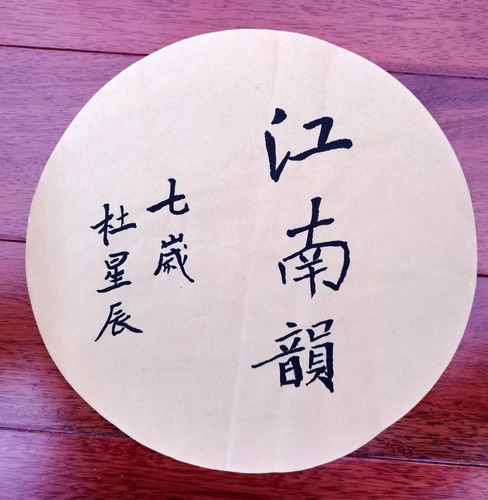 江南韻
七歲
杜星辰